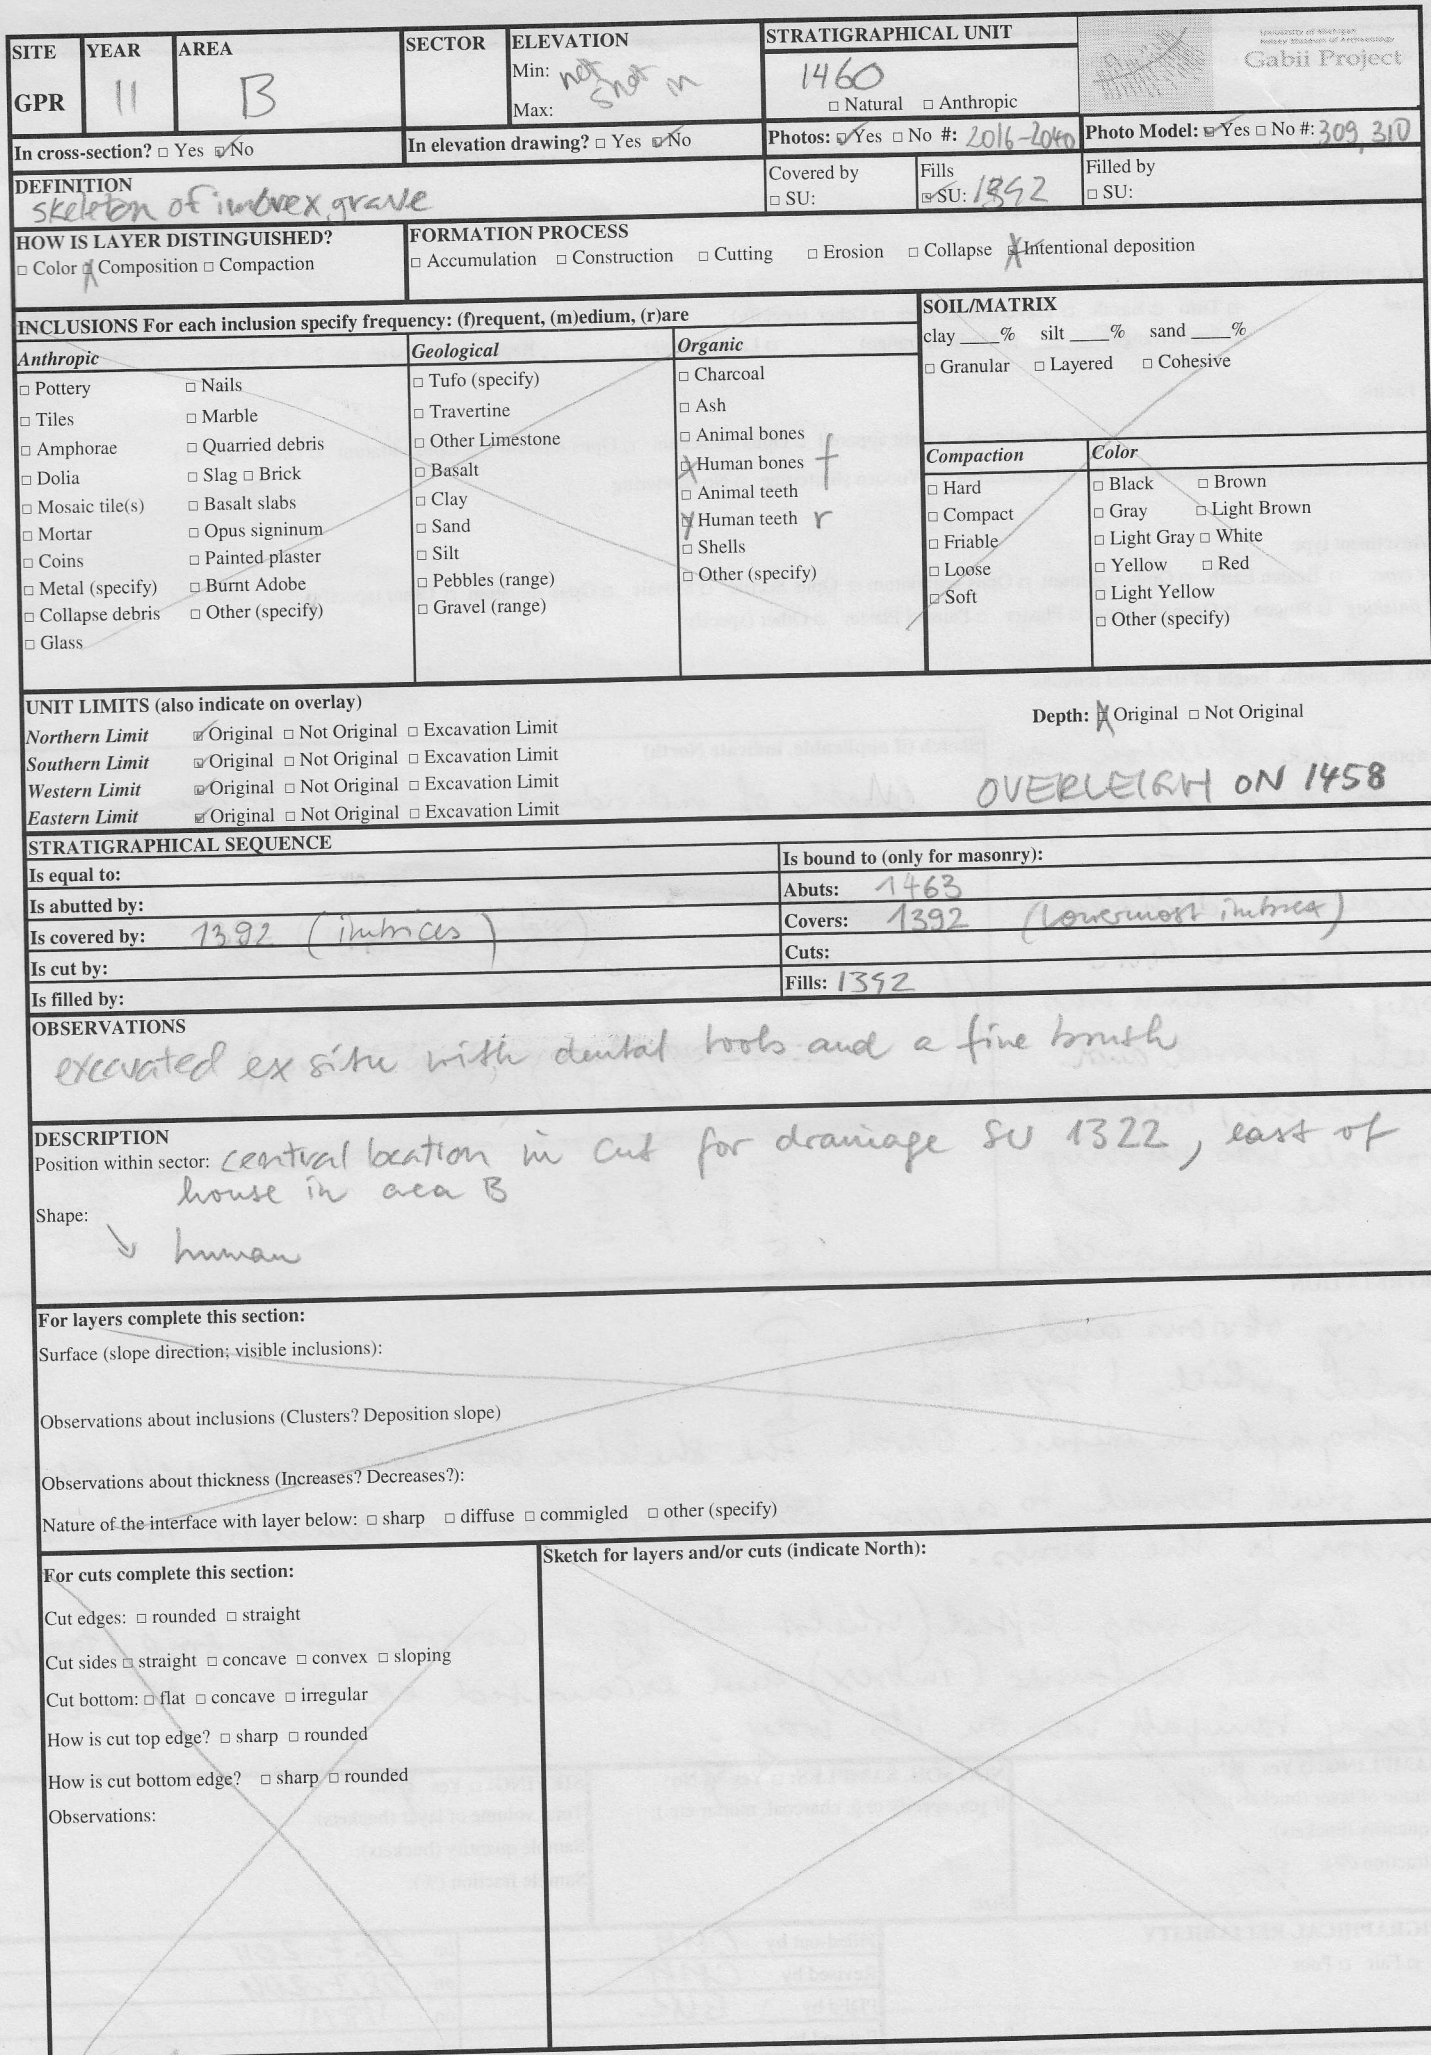 SITE YEAR AREA SECTOR ELEVATION STRATIGRAPHICAL UNIT
GPR 11 B Min: not shot in Max: 1460
□ Natural □ Anthropic
University of Michigan
Kelsey Museum of Archaeology
Gabii Project
In cross-section? □ Yes ☑ No In elevation drawing? □ Yes ☑ No Photos: ☑ Yes □ No #: 2016-2040 Photo Model: ☑ Yes □ No #: 309, 310
DEFINITION
skeleton of imbrex grave
Covered by
□ SU:
Fills
☑ SU: 1392
Filled by
□ SU:
HOW IS LAYER DISTINGUISHED?
□ Color ☒ Composition □ Compaction
FORMATION PROCESS
□ Accumulation □ Construction □ Cutting □ Erosion □ Collapse ☒ Intentional deposition
INCLUSIONS For each inclusion specify frequency: (f)requent, (m)edium, (r)are
Anthropic
□ Pottery □ Nails
□ Tiles □ Marble
□ Amphorae □ Quarried debris
□ Dolia □ Slag □ Brick
□ Mosaic tile(s) □ Basalt slabs
□ Mortar □ Opus signinum
□ Coins □ Painted plaster
□ Metal (specify) □ Burnt Adobe
□ Collapse debris □ Other (specify)
□ Glass
Geological
□ Tufo (specify)
□ Travertine
□ Other Limestone
□ Basalt
□ Clay
□ Sand
□ Silt
□ Pebbles (range)
□ Gravel (range)
Organic
□ Charcoal
□ Ash
□ Animal bones
☒ Human bones f
□ Animal teeth
☒ Human teeth r
□ Shells
□ Other (specify)
SOIL/MATRIX
clay ____% silt ____% sand ____%
□ Granular □ Layered □ Cohesive
Compaction
□ Hard
□ Compact
□ Friable
□ Loose
□ Soft
Color
□ Black □ Brown
□ Gray □ Light Brown
□ Light Gray □ White
□ Yellow □ Red
□ Light Yellow
□ Other (specify)
UNIT LIMITS (also indicate on overlay)
Northern Limit ☑ Original □ Not Original □ Excavation Limit
Southern Limit ☑ Original □ Not Original □ Excavation Limit
Western Limit ☑ Original □ Not Original □ Excavation Limit
Eastern Limit ☑ Original □ Not Original □ Excavation Limit
Depth: ☒ Original □ Not Original
OVERLEIGH ON 1458
STRATIGRAPHICAL SEQUENCE
Is equal to:
Is abutted by:
Is covered by: 1392 (imbrices)
Is cut by:
Is filled by:
Is bound to (only for masonry):
Abuts: 1463
Covers: 1392 (lowermost imbrex)
Cuts:
Fills: 1392
OBSERVATIONS
excavated ex situ with dental tools and a fine brush
DESCRIPTION
Position within sector: central location in cut for drainage SU 1322, east of
house in area B
Shape:
↘ human
For layers complete this section:
Surface (slope direction; visible inclusions):
Observations about inclusions (Clusters? Deposition slope)
Observations about thickness (Increases? Decreases?):
Nature of the interface with layer below: □ sharp □ diffuse □ commigled □ other (specify)
For cuts complete this section:
Cut edges: □ rounded □ straight
Cut sides □ straight □ concave □ convex □ sloping
Cut bottom: □ flat □ concave □ irregular
How is cut top edge? □ sharp □ rounded
How is cut bottom edge? □ sharp □ rounded
Observations:
Sketch for layers and/or cuts (indicate North):